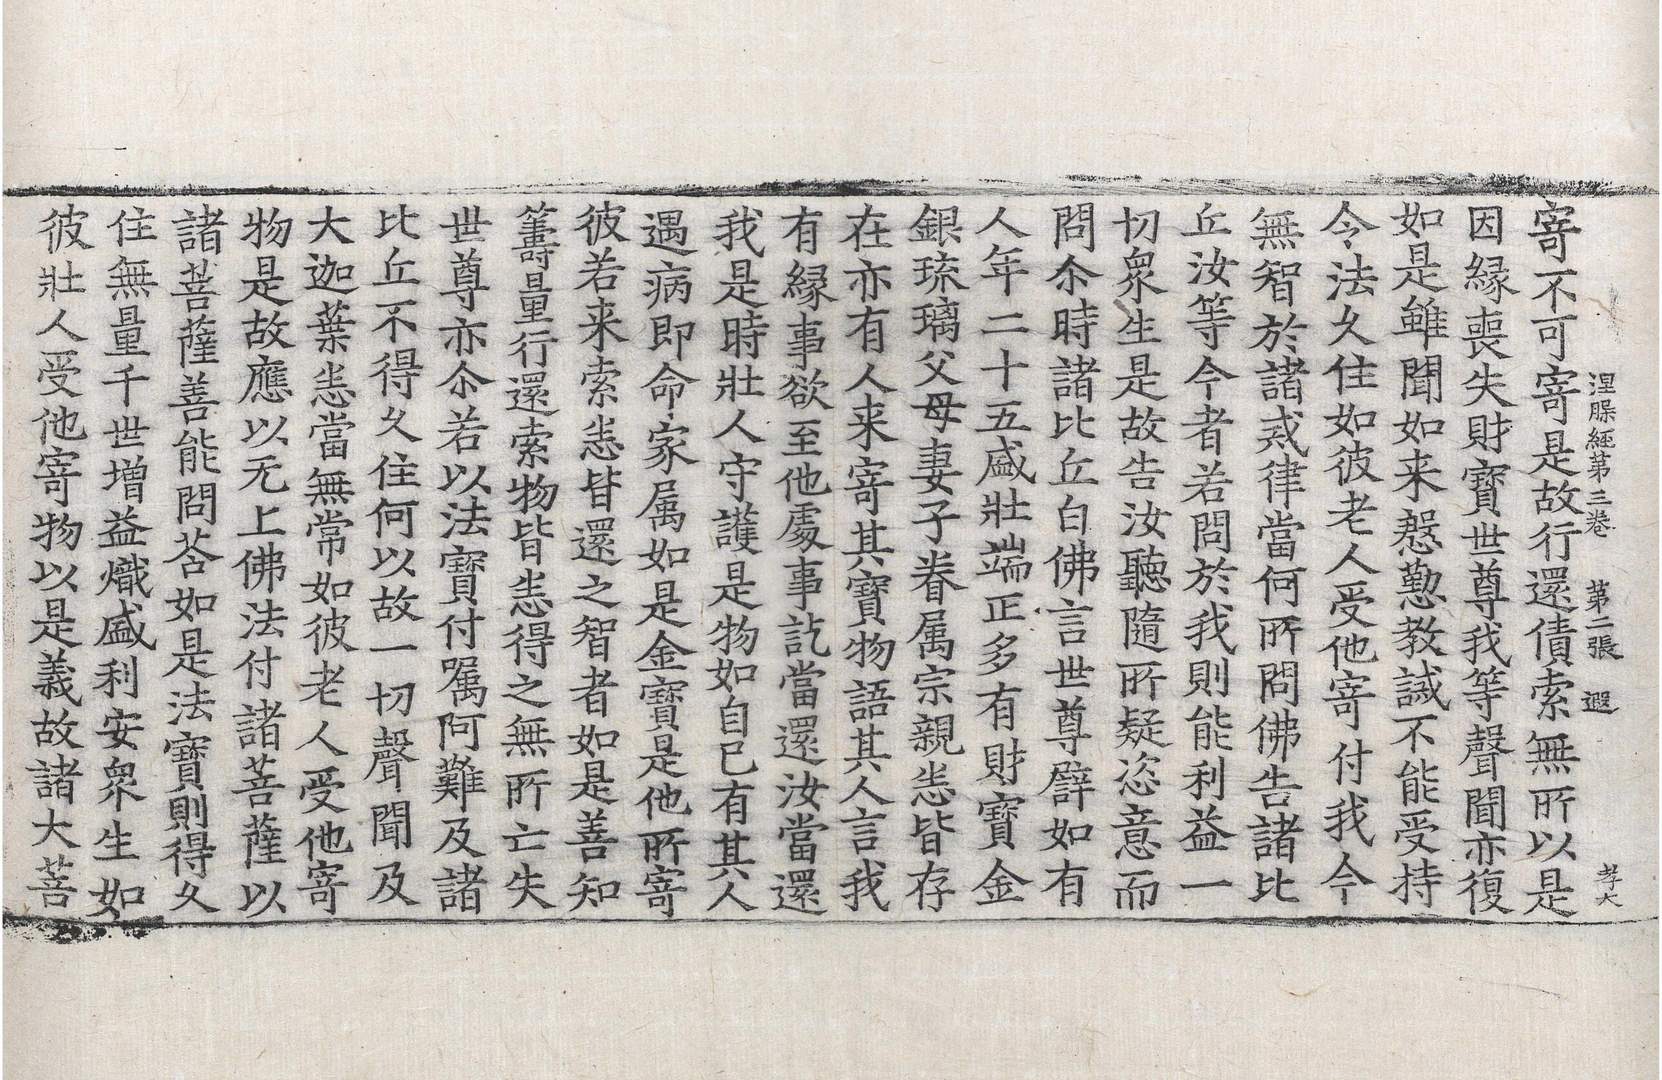 涅槃經第三卷 第二張 遐 孝大
寄不可寄是故行還債索無所以是
因縁喪失財寶世尊我等聲聞亦復
如是雖聞如来慇懃教誡不能受持
令法久住如彼老人受他寄付我今
無智於諸戒律當何所問佛告諸比
丘汝等今者若問於我則能利益一
切衆生是故告汝聽隨所疑恣意而
問尒時諸比丘白佛言世尊譬如有
人年二十五盛壯端正多有財寶金
銀琉璃父母妻子眷属宗親悉皆存
在亦有人来寄其寶物語其人言我
有縁事欲至他處事訖當還汝當還
我是時壯人守護是物如自已有其人
遇病即命家属如是金寶是他所寄
彼若来索悉皆還之智者如是善知
籌量行還索物皆悉得之無所亡失
世尊亦尒若以法寶付嘱阿難及諸
比丘不得久住何以故一切聲聞及
大迦葉悉當無常如彼老人受他寄
物是故應以无上佛法付諸菩薩以
諸菩薩善能問荅如是法寶則得久
住無量千世增益熾盛利安衆生如
彼壯人受他寄物以是義故諸大菩